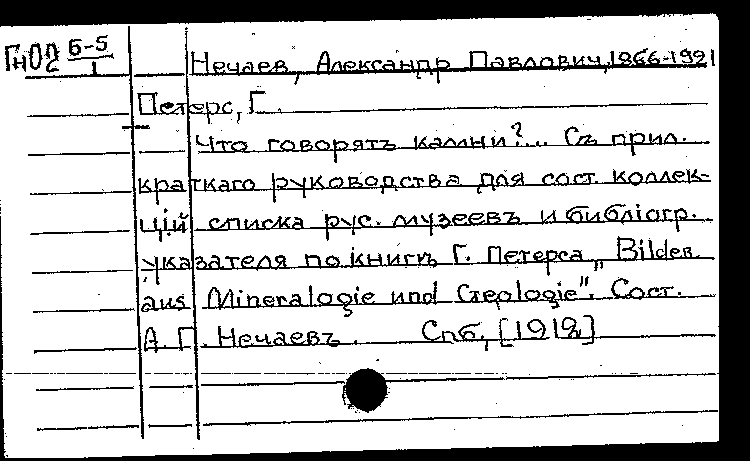 Гн02 Б-5/1 Нечаев, Александр Павлович, 1866-1921
Петерс, Г.
Что говорятъ камни?... Съ прил.
краткаго руководства для сост. коллек-
цій списка рус. музеевъ и библіогр.
указателя по книгѣ Г. Петерса „Bilder
aus Mineralogie und Geologie". Сост.
А. П. Нечаевъ. Спб, [1912]